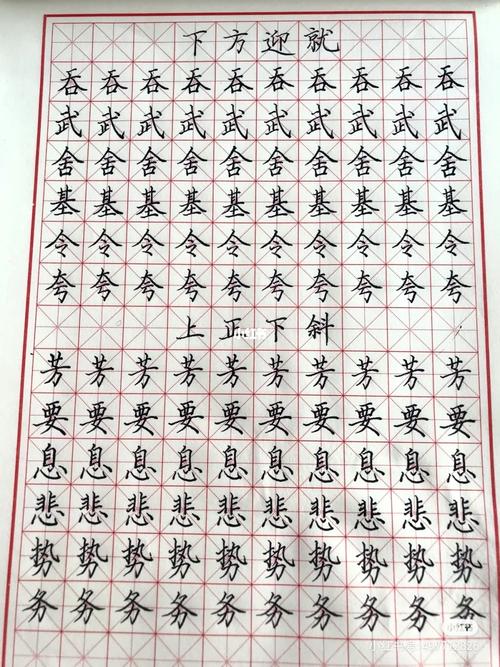 下方迎就
吞吞吞吞吞吞吞吞吞吞
武武武武武武武武武武
舍舍舍舍舍舍舍舍舍舍
基基基基基基基基基基
令令令令令令令令令令
夸夸夸夸夸夸夸夸夸夸
上正下斜
芳芳芳芳芳芳芳芳芳芳
要要要要要要要要要要
息息息息息息息息息息
悲悲悲悲悲悲悲悲悲悲
势势势势势势势势势势
务务务务务务务务务务
小红书